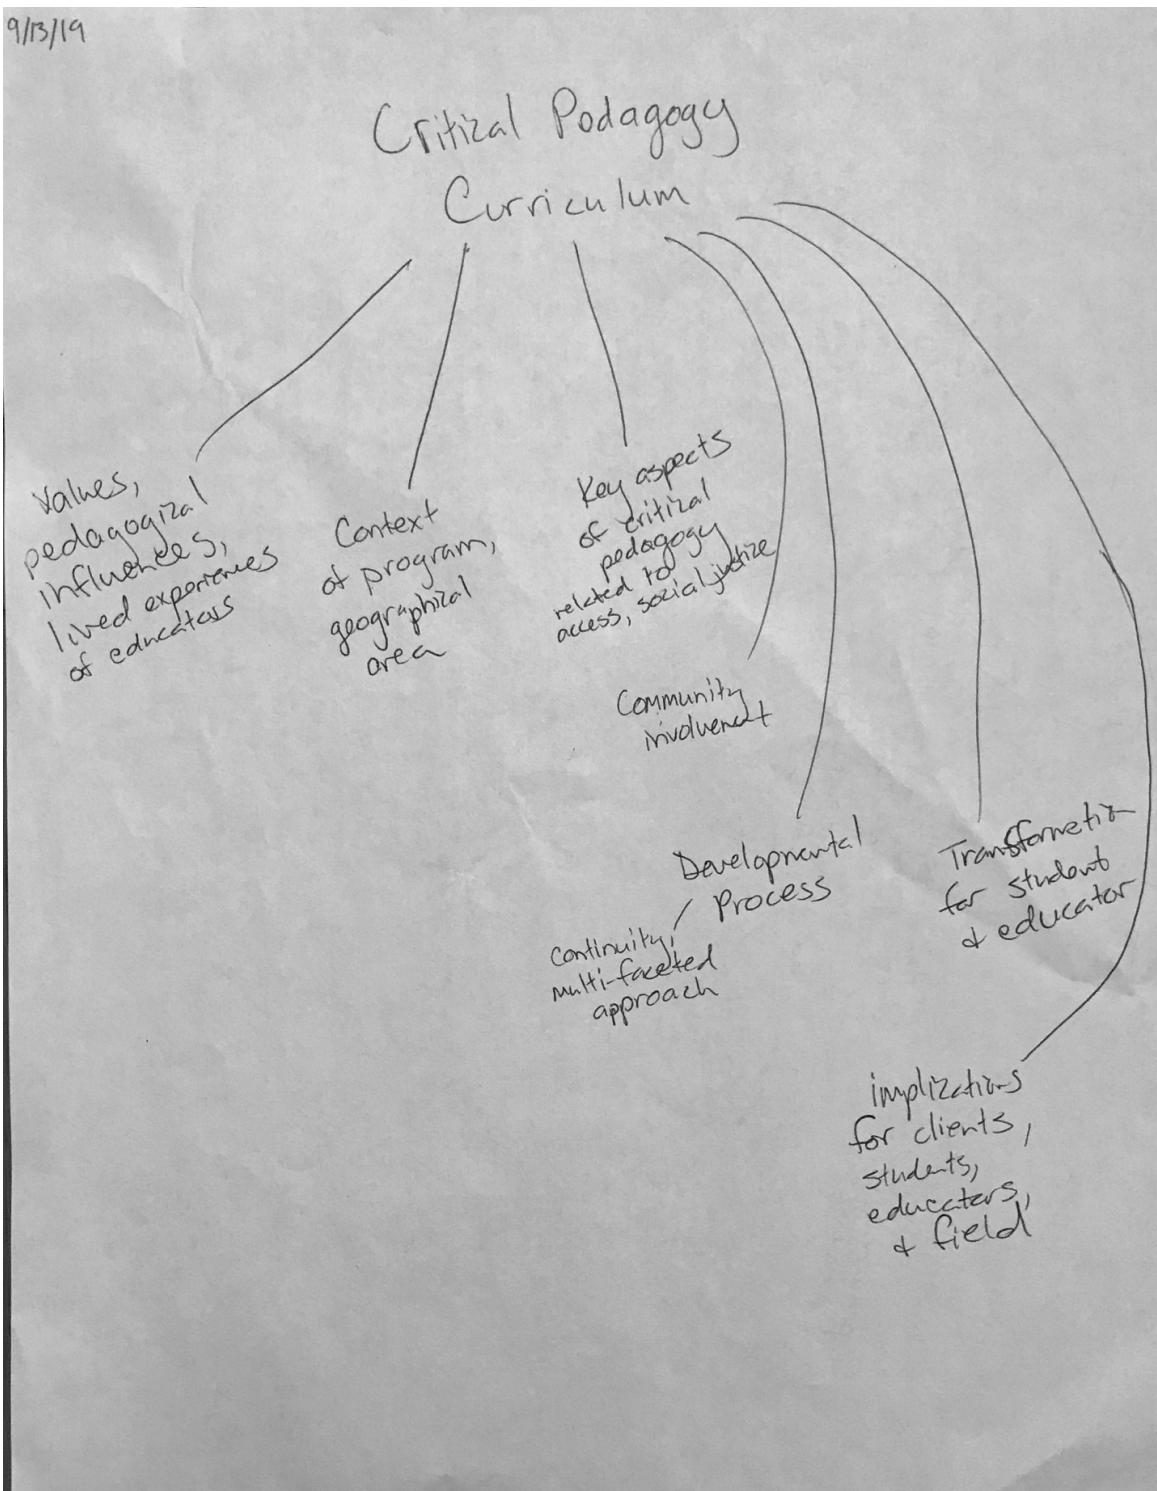 9/13/19
Critical Podagogy
Curriculum
Values,
pedagogical
influences,
lived experiences
of educators
Context
of program,
geographical
area
Key aspects
of critical
pedagogy
related to
access, social justice
Community
involvement
Developmental
Process
Continuity,
multi-faceted
approach
Transformation
for student
& educator
implications
for clients,
students,
educators,
& field